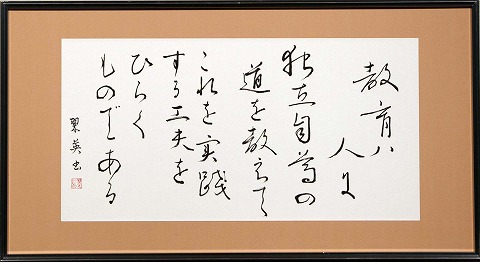 教育ハ
人に
独立自尊の
道を教えて
これを実践
する工夫を
ひらく
ものである
翠英書